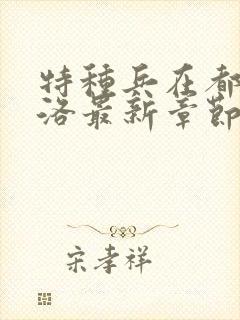 特種兵在都
洛最新章節
宋孝祥